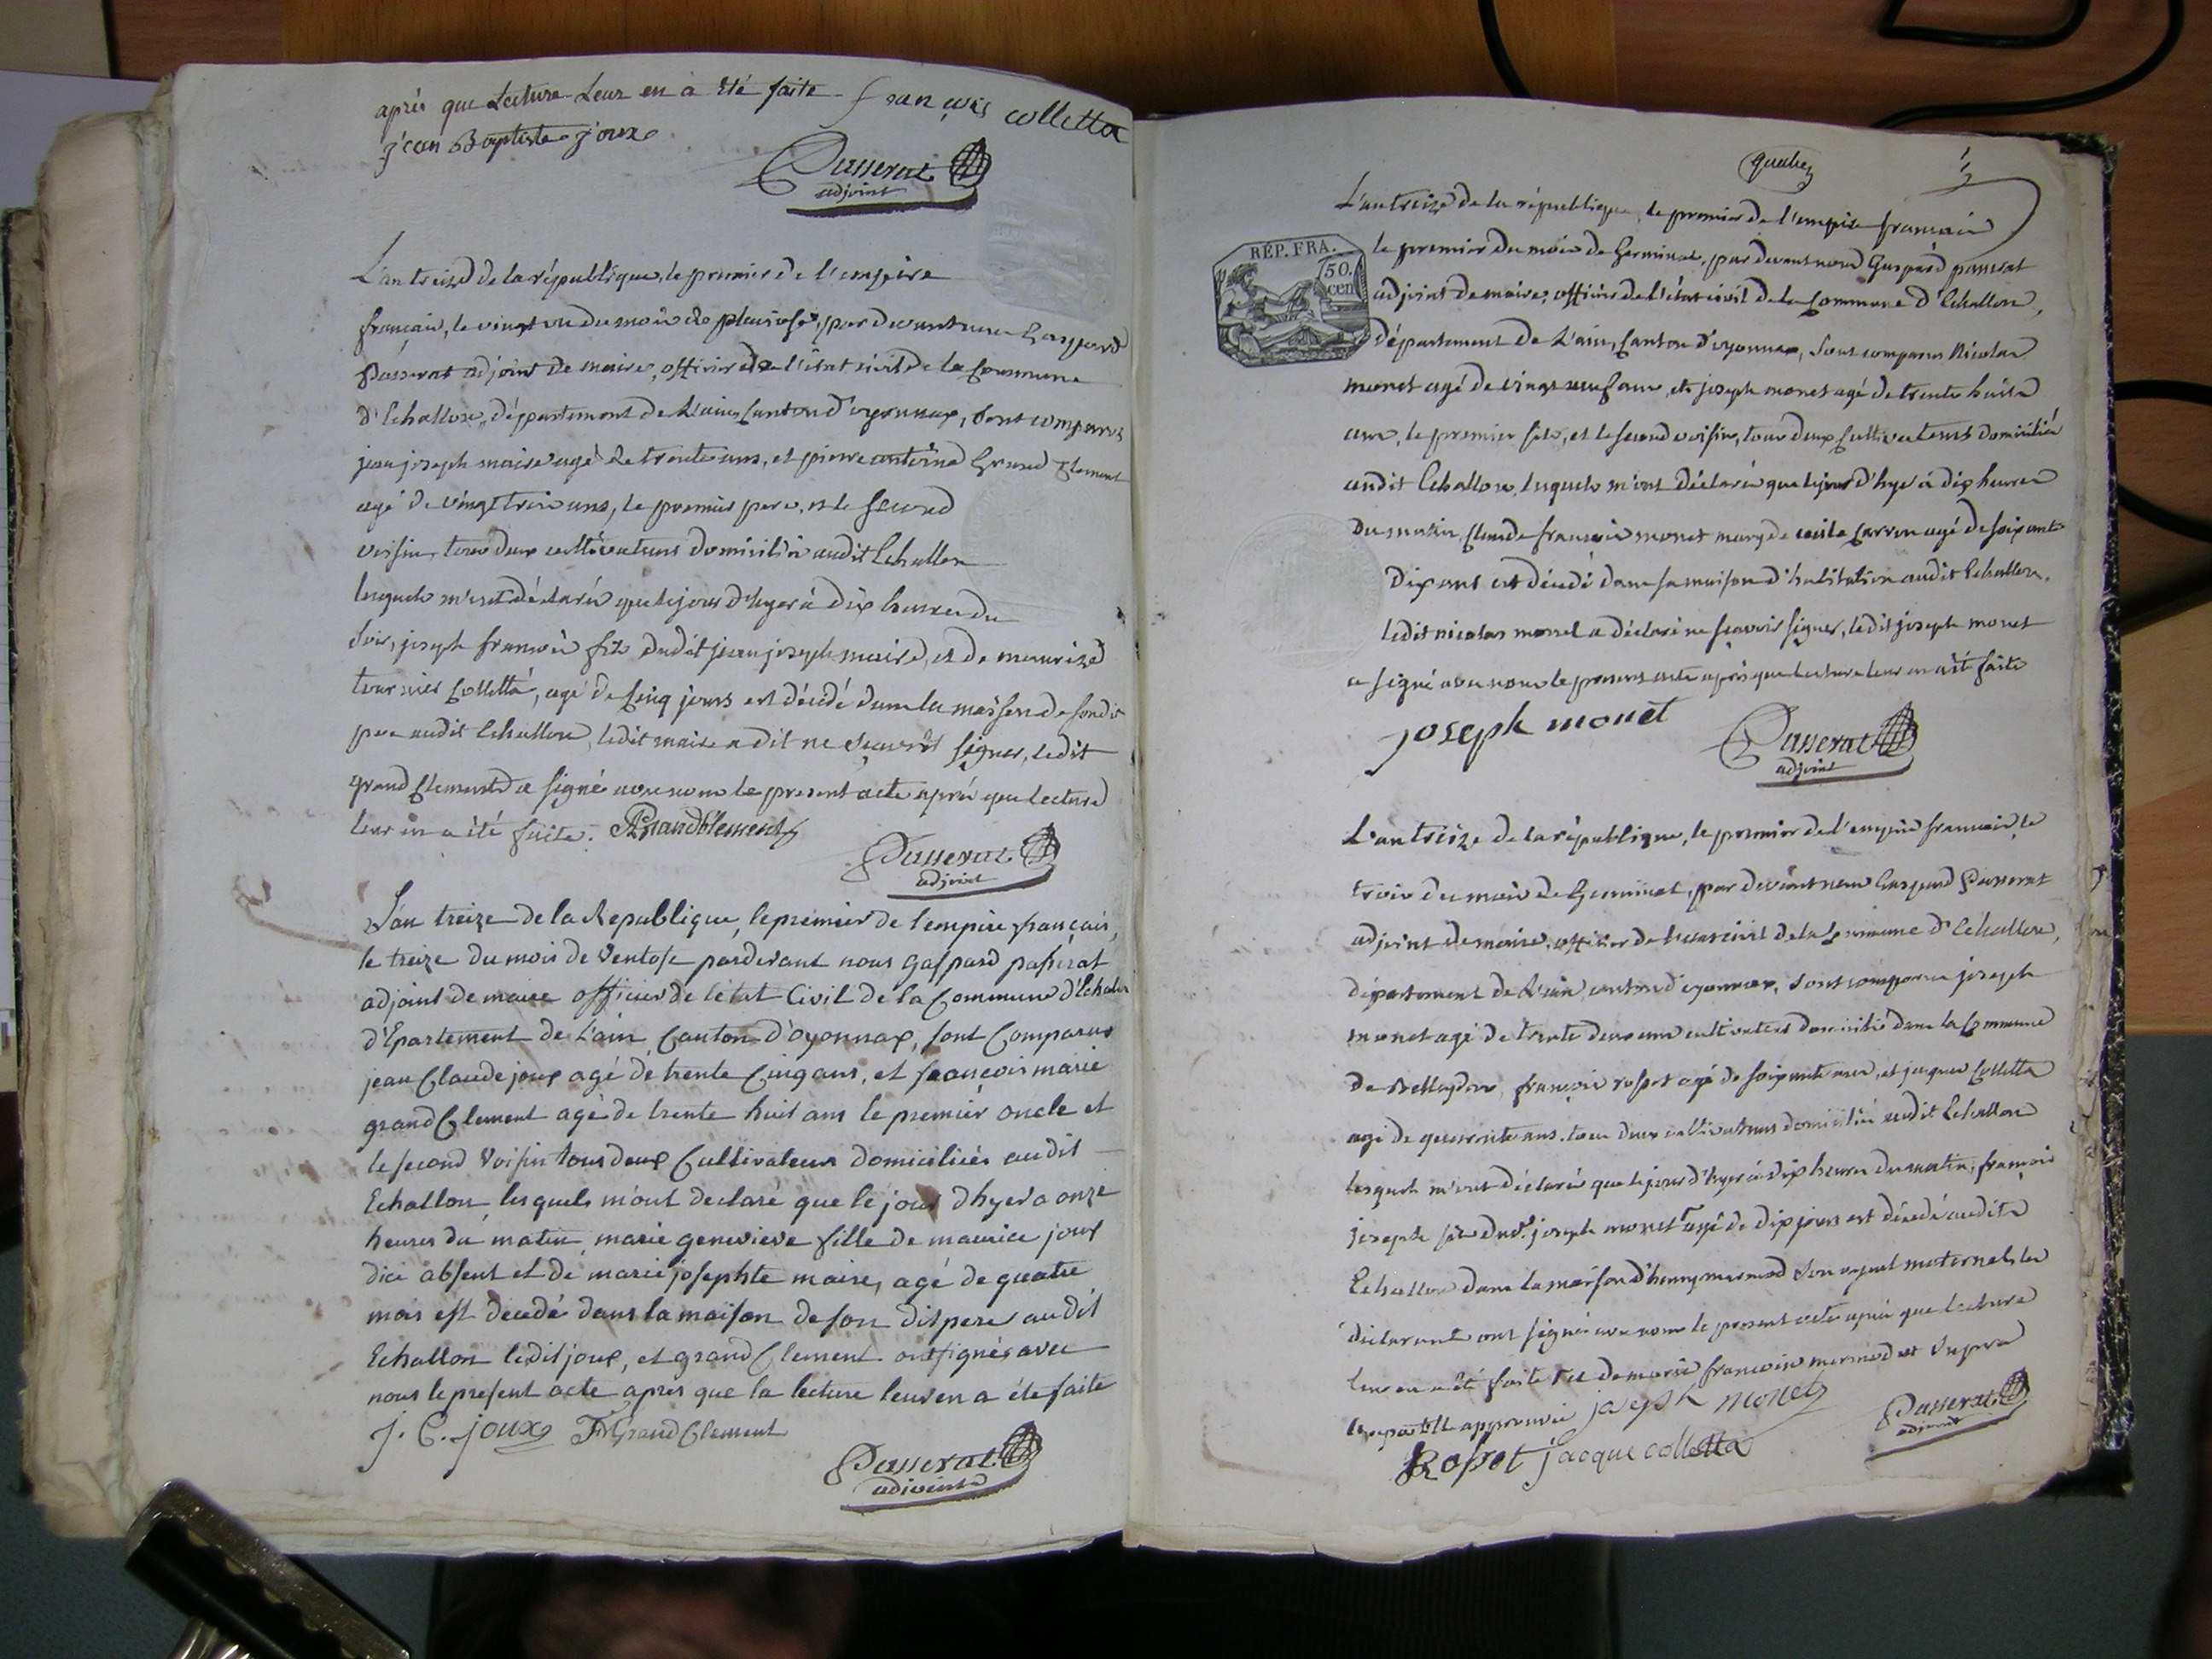 après que Lecture Leur en à été faite françois colletta
j'ean Baptiste j'oux
Passerat
adjoint
L'an treize de la république, le premier de l'empire
français, le vingt un du mois de pluviose, par devant nous Gaspard
Passerat adjoint de maire, officier de l'état civil de la Commune
d'Echallon, département de L'ain Canton d'oyonnax, sont comparus
jean joseph maire agé de trente ans, et pierre antoine Grand Clement
agé de vingt trois ans, le premier pere, et le second
voisin, tous deux cultivateurs domiciliés audit Echallon
lesquels m'ont déclaré que le jour d'hyer à dix heures du
soir, joseph françois fils dudit jean joseph maire, et de
tournier Colletta, agé de Cinq jours est décédé dans la maison de sondit
pere audit Echallon, ledit maire a dit ne sçavoir signer, ledit
grand Clement a signé avec nous le present acte après que lecture
leur en a été faite. PAGrandClement
Passerat
adjoint
L'an treize de la Republique, le premier de l'empire français,
le treize du mois de Ventose pardevant nous Gaspard passerat
adjoint de maire officier de l'etat Civil de la Commune d'Echalon
d'Epartement de L'ain Canton d'oyonnax, sont Comparus
jean Claude joux agé de trente Cinq ans, et françois marie
grand Clement agé de trente huit ans le premier oncle et
le second Voisin tous deux Cultivateurs domiciliés audit
Echallon, lesquels m'ont declaré que le jour d'hyer a onze
heures du matin, marie genevieve fille de maurice joux
dice absent et de marie josephte maire, agé de quatre
mois est decedé dans la maison de son dit pere audit
Echallon ledit joux, et grand Clement ont signés avec
nous le present acte apres que la lecture leur en a éte faite
j. C. joux FMGrandClement
Passerat
adjoint
quatre
L'an treize de la république, le premier de l'empire francais
RÉP. FRA.
50.
cen
le premier du mois de Germinal, par devant nous Gaspard passerat
adjoint de maire, officier de l'état civil de la Commune d'Echallon,
département de L'ain, Canton d'oyonnax, sont comparus Nicolas
monet agé de vingt neuf ans, et joseph monet agé de trente huit
ans, le premier fils, et le second voisin, tous deux Cultivateurs domiciliés
audit Echallon, lesquels m'ont déclaré que le jour d'hyer à dix heures
du matin Claude françois monet mary de Carron agé de soixante
dix ans est décédé dans sa maison d'habitation audit Echallon,
ledit nicolas monet a déclaré ne sçavoir signer, ledit joseph monet
a signé avec nous le present acte après que lecture leur en a été faite
joseph monet
Passerat
adjoint
L'an treize de la république, le premier de l'empire francais, le
trois du mois de Germinal, par devant nous Gaspard Passerat
adjoint de maire, officier de l'etat civil de la Commune d'Echallon,
département de L'ain, canton d'oyonnax, sont comparus joseph
monet agé de trente deux ans cultivateur domicilié dans la Commune
de Belleydoux, françois rosset agé de soixante ans, et jacques Colletta
agé de quarante ans, tous deux cultivateurs domiciliés audit Echallon
lesquels m'ont déclaré que le jour d'hyer à dix heures du matin, françois
joseph fils dudt. joseph monet agé de dix jours est décédé audit
Echallon dans la maison d'henry mermod son ayeul maternel, les
déclarants ont signé avec nous le present acte après que lecture
leur en a été faite et de marie françoise mermod
approuvé joseph monet
Passerat
adjoint
Rosset jacque colletta